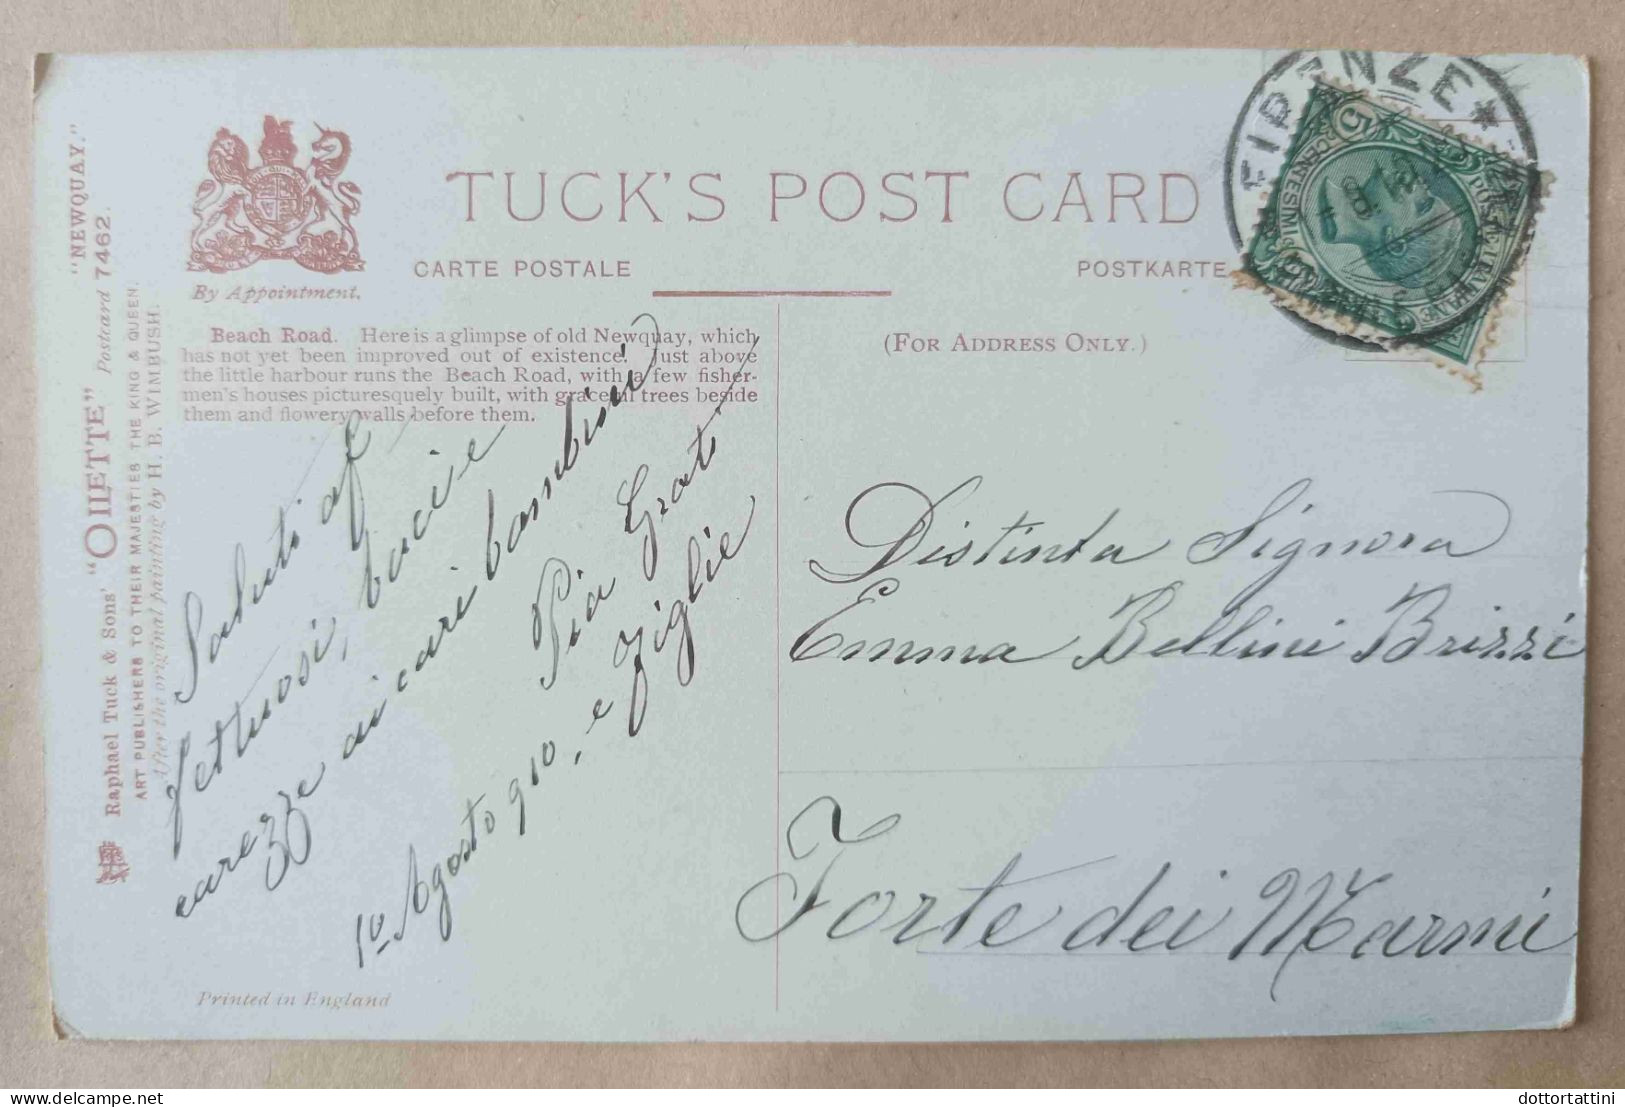 "NEWQUAY."
"OILETTE" Postcard 7462.
Raphael Tuck & Sons'
ART PUBLISHERS TO THEIR MAJESTIES THE KING & QUEEN.
After the original painting by H. B. WIMBUSH.
By Appointment.
TUCK'S POST CARD
CARTE POSTALE
POSTKARTE
Beach Road. Here is a glimpse of old Newquay, which
has not yet been improved out of existence. Just above
the little harbour runs the Beach Road, with a few fisher-
men's houses picturesquely built, with graceful trees beside
them and flowery walls before them.
(FOR ADDRESS ONLY.)
FIRENZE
5 CENTESIMI 5
POSTE ITALIANE
Saluti af
fettuosi, bacie
carezze ai cari bambini
Pia Grati
e figlie
1º Agosto 910.
Distinta Signora
Emma Bellini Brizzi
Forte dei Marmi
Printed in England
dottortattini